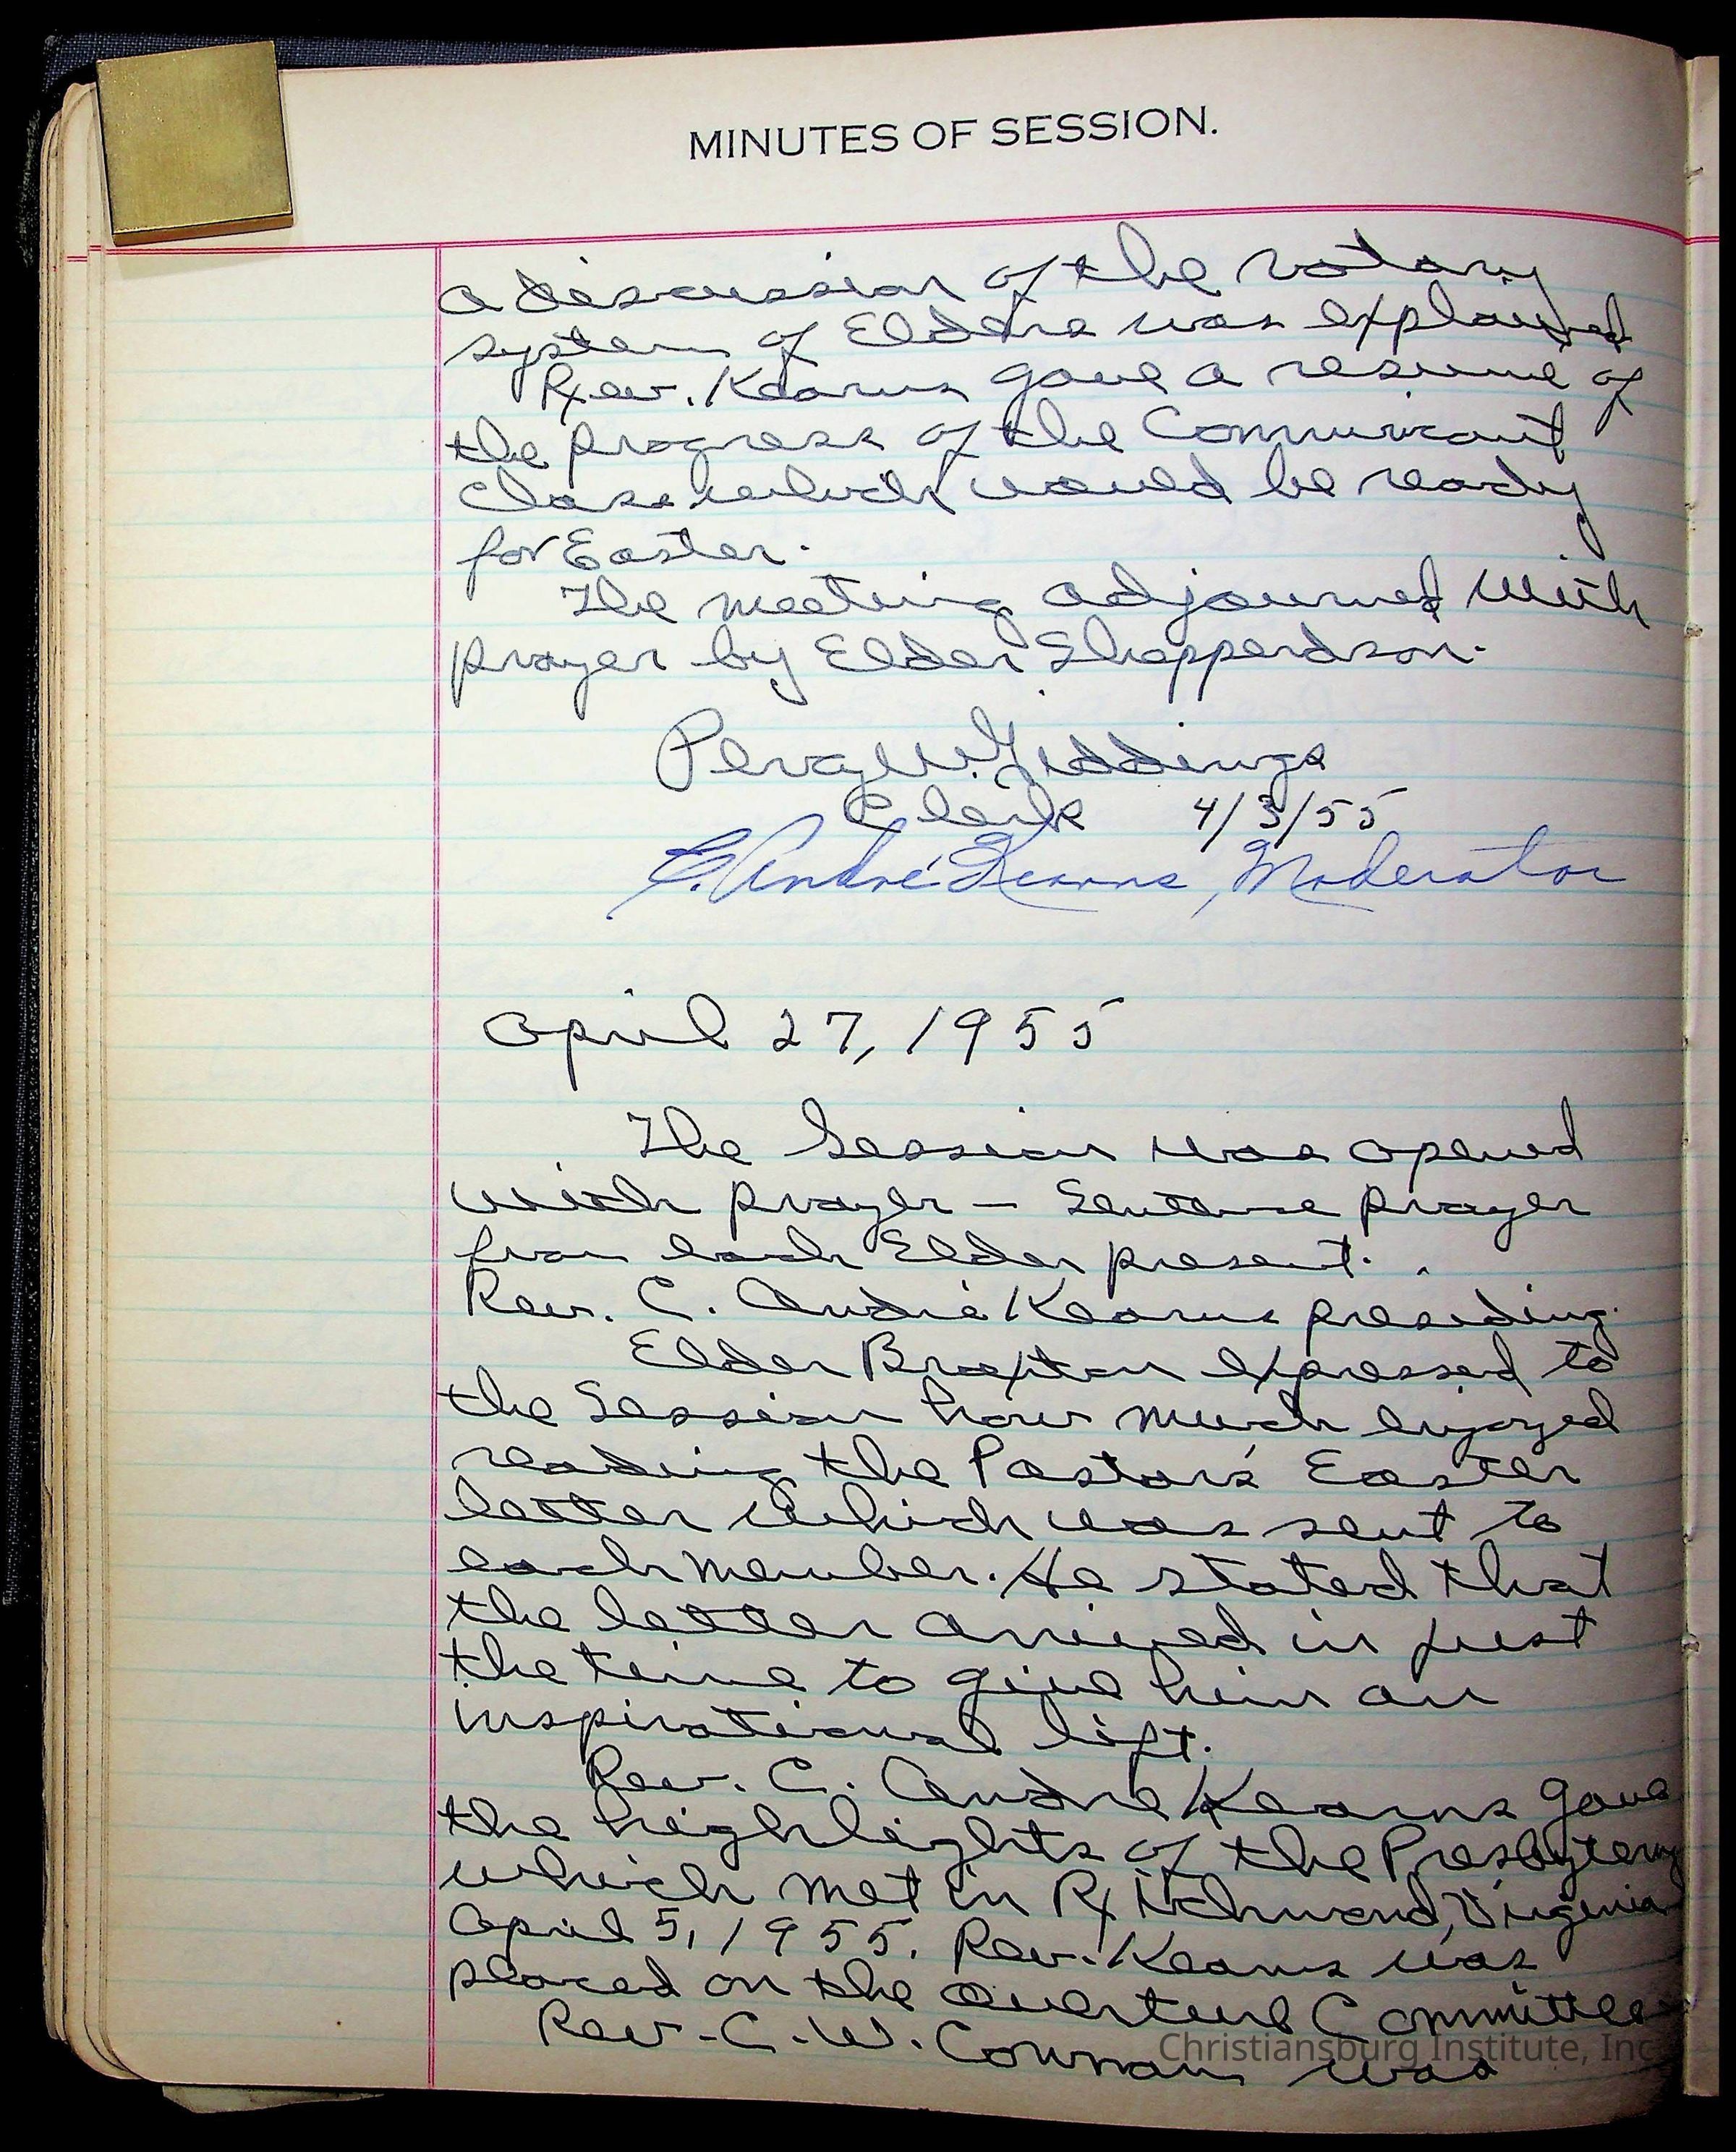 MINUTES OF SESSION.
a discussion of the rotary
system of Elders was explained
Rev. Kearns gave a resume of
the progress of the Communicant
Class which would be ready
for Easter.
The meeting adjourned with
prayer by Elder Shepperdson.
Percy W. Giddings
Clerk 4/3/55
C. André Kearns, Moderator
April 27, 1955
The Session was opened
with prayer — Sentence prayer
from each Elder present.
Rev. C. André Kearns presiding.
Elder Braxton expressed to
the Session how much enjoyed
reading the Pastor's Easter
letter which was sent to
each member. He stated that
the letter arrived in just
the time to give him an
inspirational lift.
Rev. C. Andre Kearns gave
the highlights of the Presbytery
which met in Richmond, Virginia
April 5, 1955. Rev. Kearns was
placed on the Overture Committee
Rev. C. W. was
Christiansburg Institute, Inc